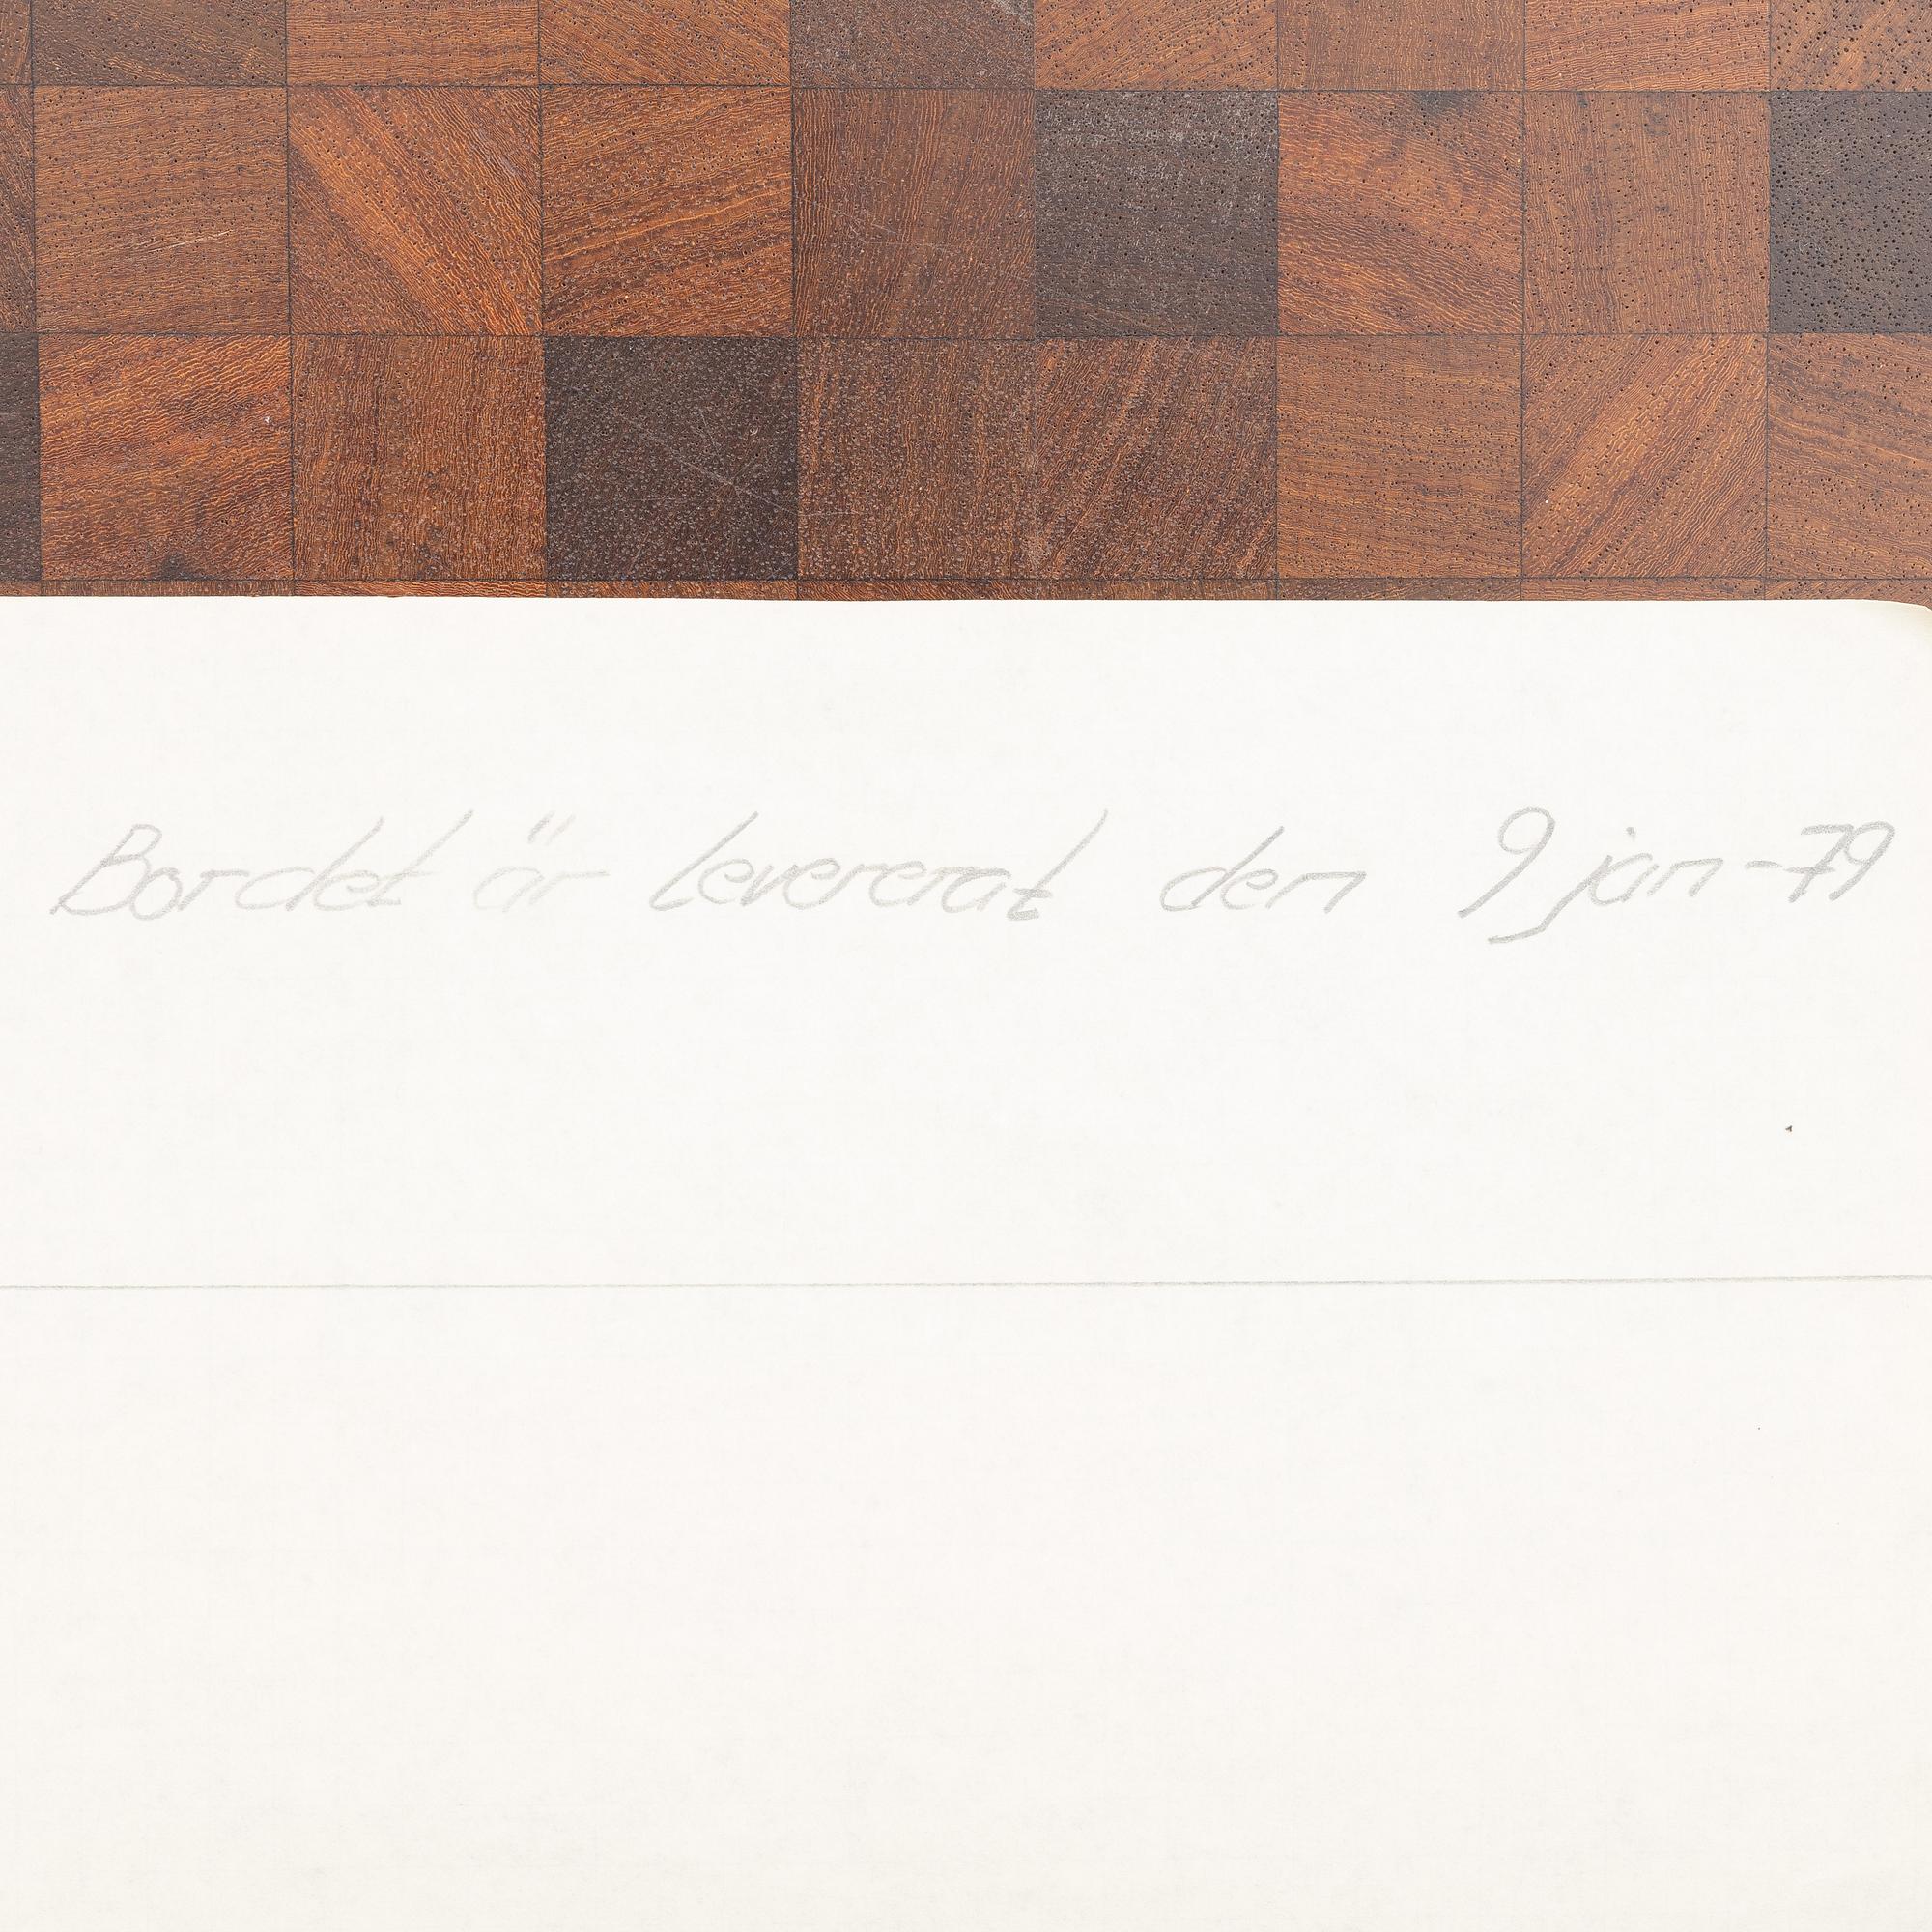 Bordet är levererat den 9 jan -79